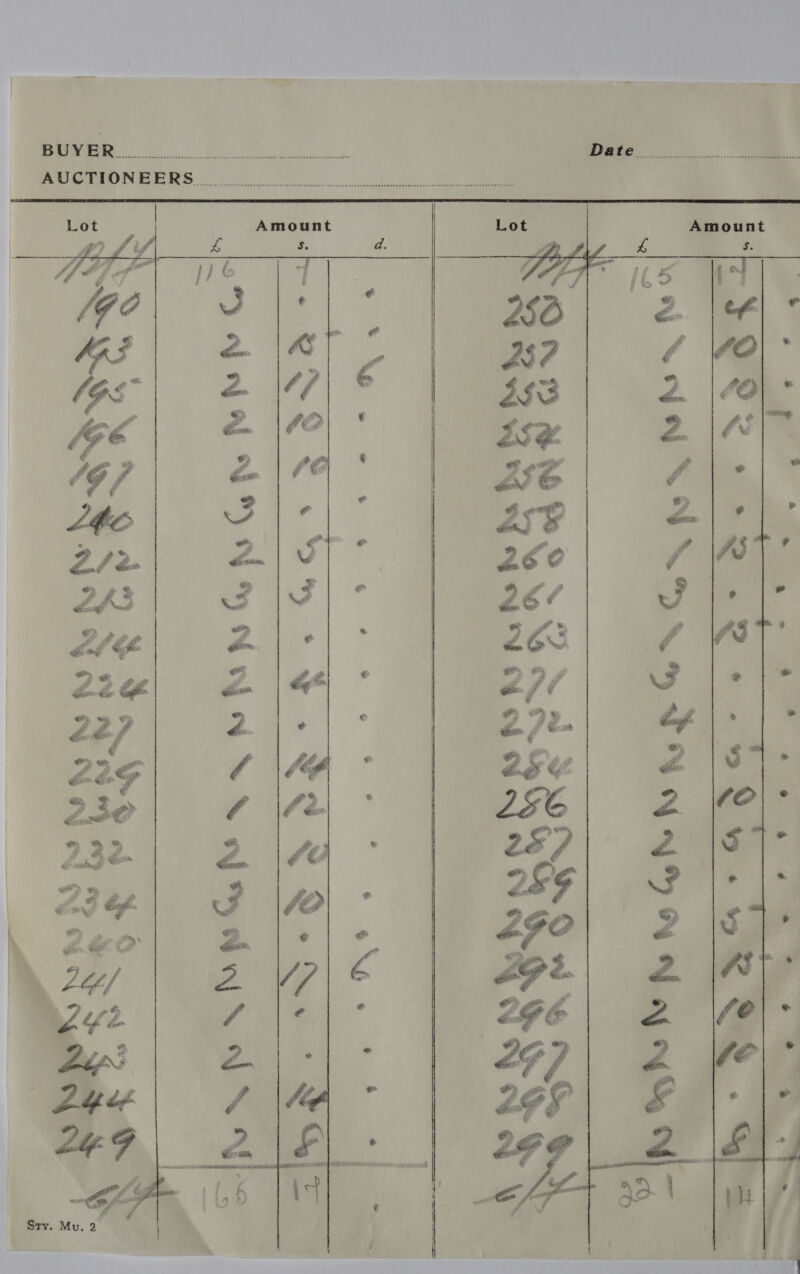 BUYER
AUCTIONEERS
Lot Amount
£ s. d.
B/f 116 7
190 3 . .
193 2 15 .
195 2 17 6
196 2 10 .
197 2 10 .
3 . .
212 2 5 .
213 3 3 .
214 2 . .
224 2 4 .
227 2 . .
229 1 14 .
230 1 12 .
232 2 10 .
234 3 10 .
240 2 . .
241 2 17 6
242 1 . .
243 2 . .
244 1 14 .
249 2 8 .
c/f 165 19
Sty. Mu. 2
Date
Lot Amount
£ s.
B/f 165 19
250 2 4 .
257 1 10 .
253 2 10 .
254 2 15
256 1 . .
258 2 . .
260 1 15 .
261 3 . .
263 1 15 .
271 3 . .
272 4 . .
284 2 5 .
286 2 10 .
287 2 5 .
289 3 . .
290 2 5 .
292 2 15 .
296 2 10 .
297 2 10 .
298 8 . .
299 2 8 .
c/f 221 14 .